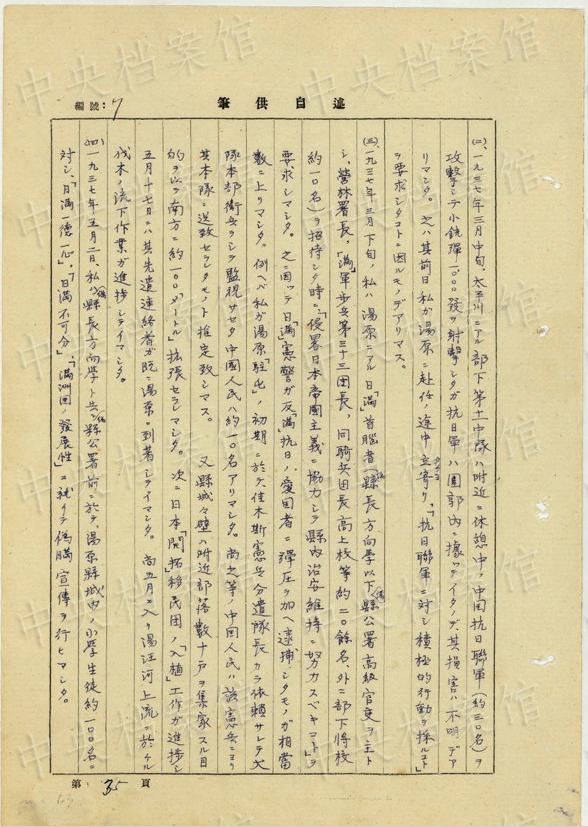 編號：7
筆供自述
(二)、一九三七年三月中旬、太平川ニアル部下第十一中隊ハ附近ニ休憩中、中国抗日聯軍（約三〇名）ヲ
攻撃シテ小銃弾一、〇〇〇發ヲ射撃シタガ抗日軍ハ圍郭内ニ據ッテイタノデ其損害ハ不明デア
リマシタ。之ハ其前日私ガ湯原ニ赴任ノ途中立寄リ、「抗日聯軍ニ対シ積極的行動ヲ採ルコト」
ヲ要求シタコトニ因ルモノデアリマス。
(三)、一九三七年三月下旬、私ハ湯原ニアル日「満」首腦者（偽縣長方向學以下偽縣公署高級官吏ヲ主ト
シ、營林署長、「満」軍歩兵第三十三団長、同騎兵団長高上校等約二〇餘名、外ニ部下將校
約一〇名）ヲ招待シタ時ニ、「侵畧日本帝國主義ニ協力シテ縣内治安維持ニ努力スベキコト」ヲ
要求シマシタ。之ニ因ッテ日「満」憲警ガ反「満」抗日ノ愛国者ニ弾圧ヲ加ヘ逮捕シタモノガ相當
數ニ上リマシタ。例ヘバ私ガ湯原「駐屯」ノ初期ニ於テ佳木斯憲兵分遣隊長カラ依頼サレテ大
隊本部衛兵ヲシテ監視サセタ中國人民ハ約一〇名アリマシタ。尚之等ノ中国人民ハ該憲兵ニヨリ
其本隊ニ送致セラレタモノト推定致シマス。 又縣城々壁ハ附近部落數十戸ヲ集家スル目
的ヲ以テ南方ニ約一〇〇「メートル」拡張セラレマシタ。次ニ日本「開拓」移民団ノ「入植」工作ガ進捗シ
五月十七日ニハ其先遣連終者ガ既ニ湯原ニ到著シテイマシタ。尚五月ニ入リ湯汪河上流ニ於ケル
伐木ノ流下作業ガ進捗シテイマシタ。
(四)、一九三七年五月二日、私ハ偽縣長方向學ト共ニ偽縣公署前ニ於テ湯原縣城内ノ小學生徒約一〇〇名ニ
対シ、「日満一德一心」、「日満不可分」、「満洲国ノ發展性」ニ就イテ偽瞞宣傳ヲ行ヒマシタ。
第 35 頁
中央档案馆